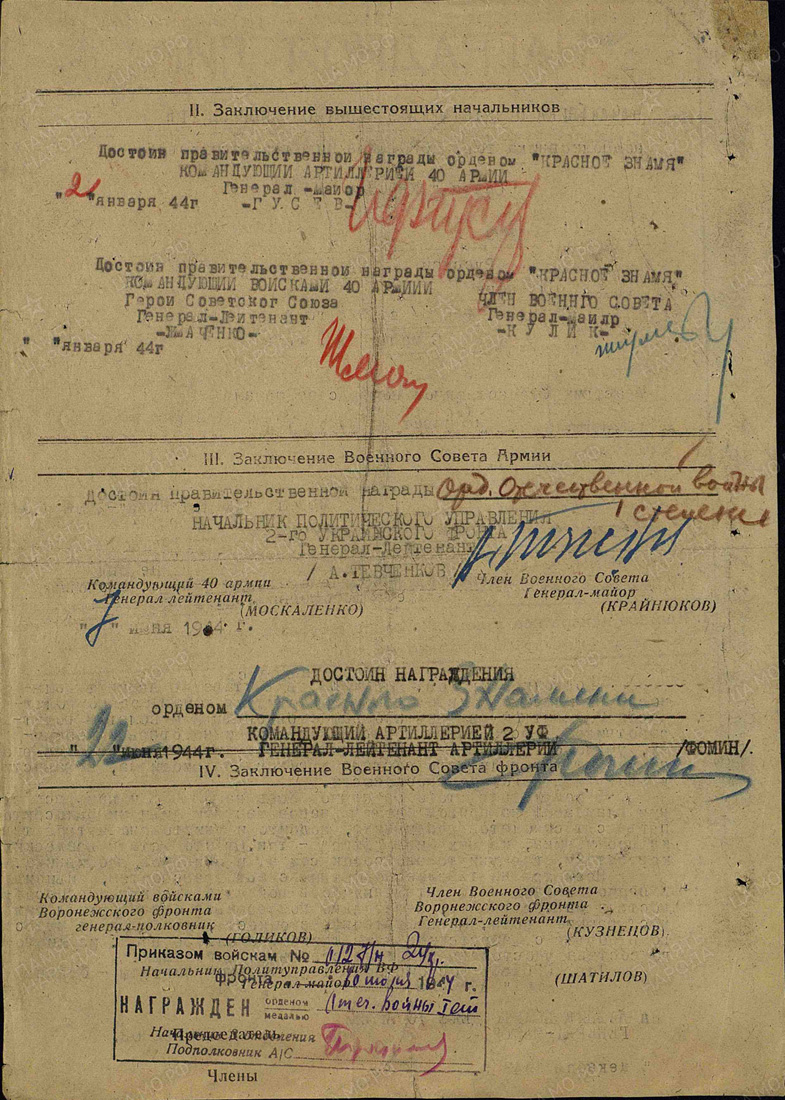 II. Заключение вышестоящих начальников
Достоин правительственной награды орденом "КРАСНОЕ ЗНАМЯ"
КОМАНДУЮЩИЙ АРТИЛЛЕРИЕЙ 40 АРМИИ
Генерал-майор
"21"января 44г -ГУСЕВ-
Достоин правительственной награды орденом "КРАСНОЕ ЗНАМЯ"
КОМАНДУЮЩИЙ ВОЙСКАМИ 40 АРМИИ
Герой Советског Союза ЧЛЕН ВОЕННГО СОВЕТА
Генерал-Лейтенант Генерал-майор
-ЖМАЧЕНКО- -КУЛИК-
" "января 44г
III. Заключение Военного Совета Армии
достоин правительственной награды Орд. Отечественной войны
I степени
НАЧАЛЬНИК ПОЛИТИЧЕСКОГО УПРАВЛЕНИЯ
2-го УКРАИНСКОГО ФРОНТА
Генерал-Лейтенант
/ А.ТЕВЧЕНКОВ /
Командующий 40 армии Член Военного Совета
Генерал лейтенант Генерал-майор
(МОСКАЛЕНКО) (КРАЙНЮКОВ)
"7" июня 1944 г.
ДОСТОИН НАГРАЖДЕНИЯ
орденом Красного Знамени
КОМАНДУЮЩИЙ АРТИЛЛЕРИЕЙ 2 УФ
"22" июня 1944г. ГЕНЕРАЛ-ЛЕЙТЕНАНТ АРТИЛЛЕРИИ /ФОМИН/.
IV. Заключение Военного Совета фронта
Командующий войсками Член Военного Совета
Воронежского фронта Воронежского фронта
генерал-полковник Генерал-лейтенант
(ГОЛИКОВ) (КУЗНЕЦОВ)
Приказом войскам №
Начальник Политуправления ВФ
Генерал-майор (ШАТИЛОВ)
фронта 194 г.
НАГРАЖДЕН орденом Отеч. войны I ст
медалью
Председатель
Подполковник А/С
Члены